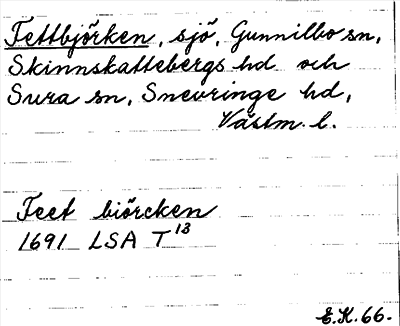 Fettbjörken, sjö, Gunnilbo sn,
Skinnskattebergs hd och
Sura sn, Snevringe hd,
Västm. l.
Feet biörcken
1691 LSA T¹³
E.K.66.